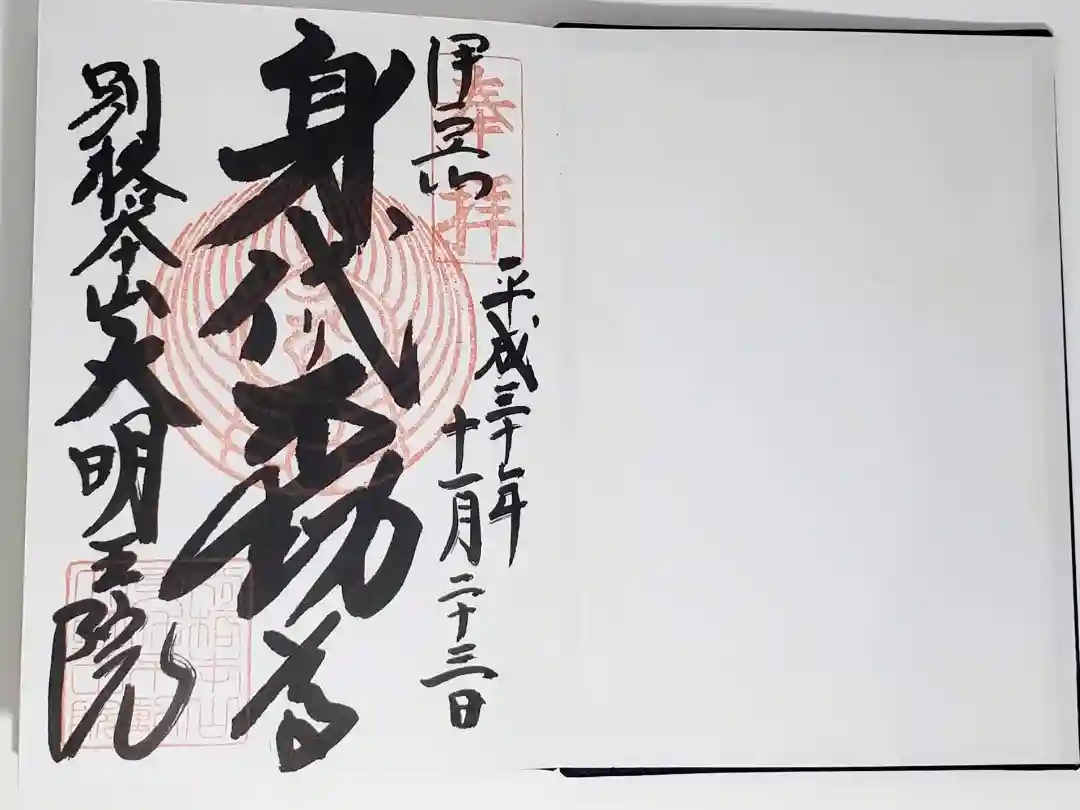 奉拝
伊豆山
平成三十年
十一月二十三日
身代り不動尊
別格本山大明王院